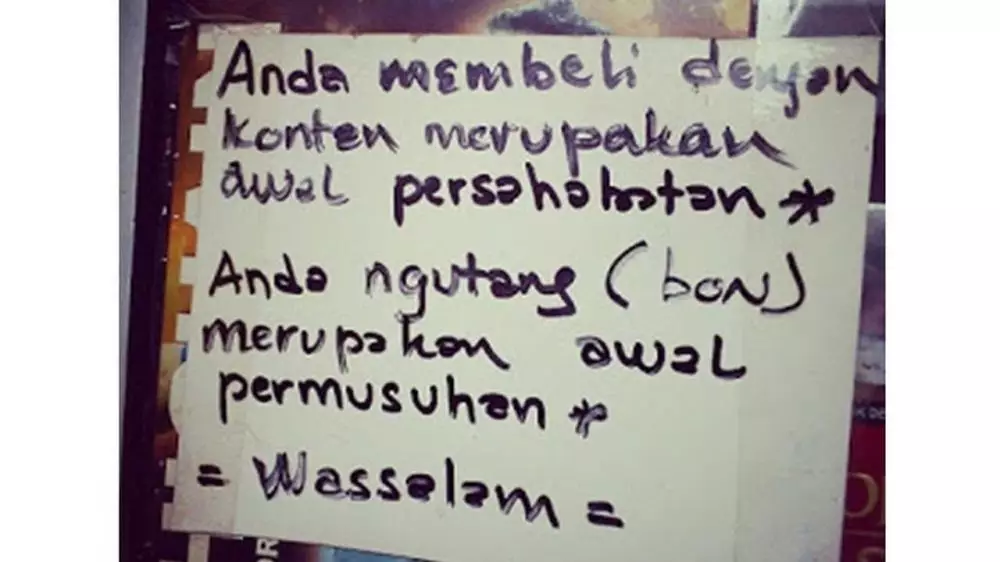 Anda membeli dengan
konten merupakan
awal persahabatan *
Anda ngutang (bon)
merupakan awal
permusuhan *
= Wassalam =